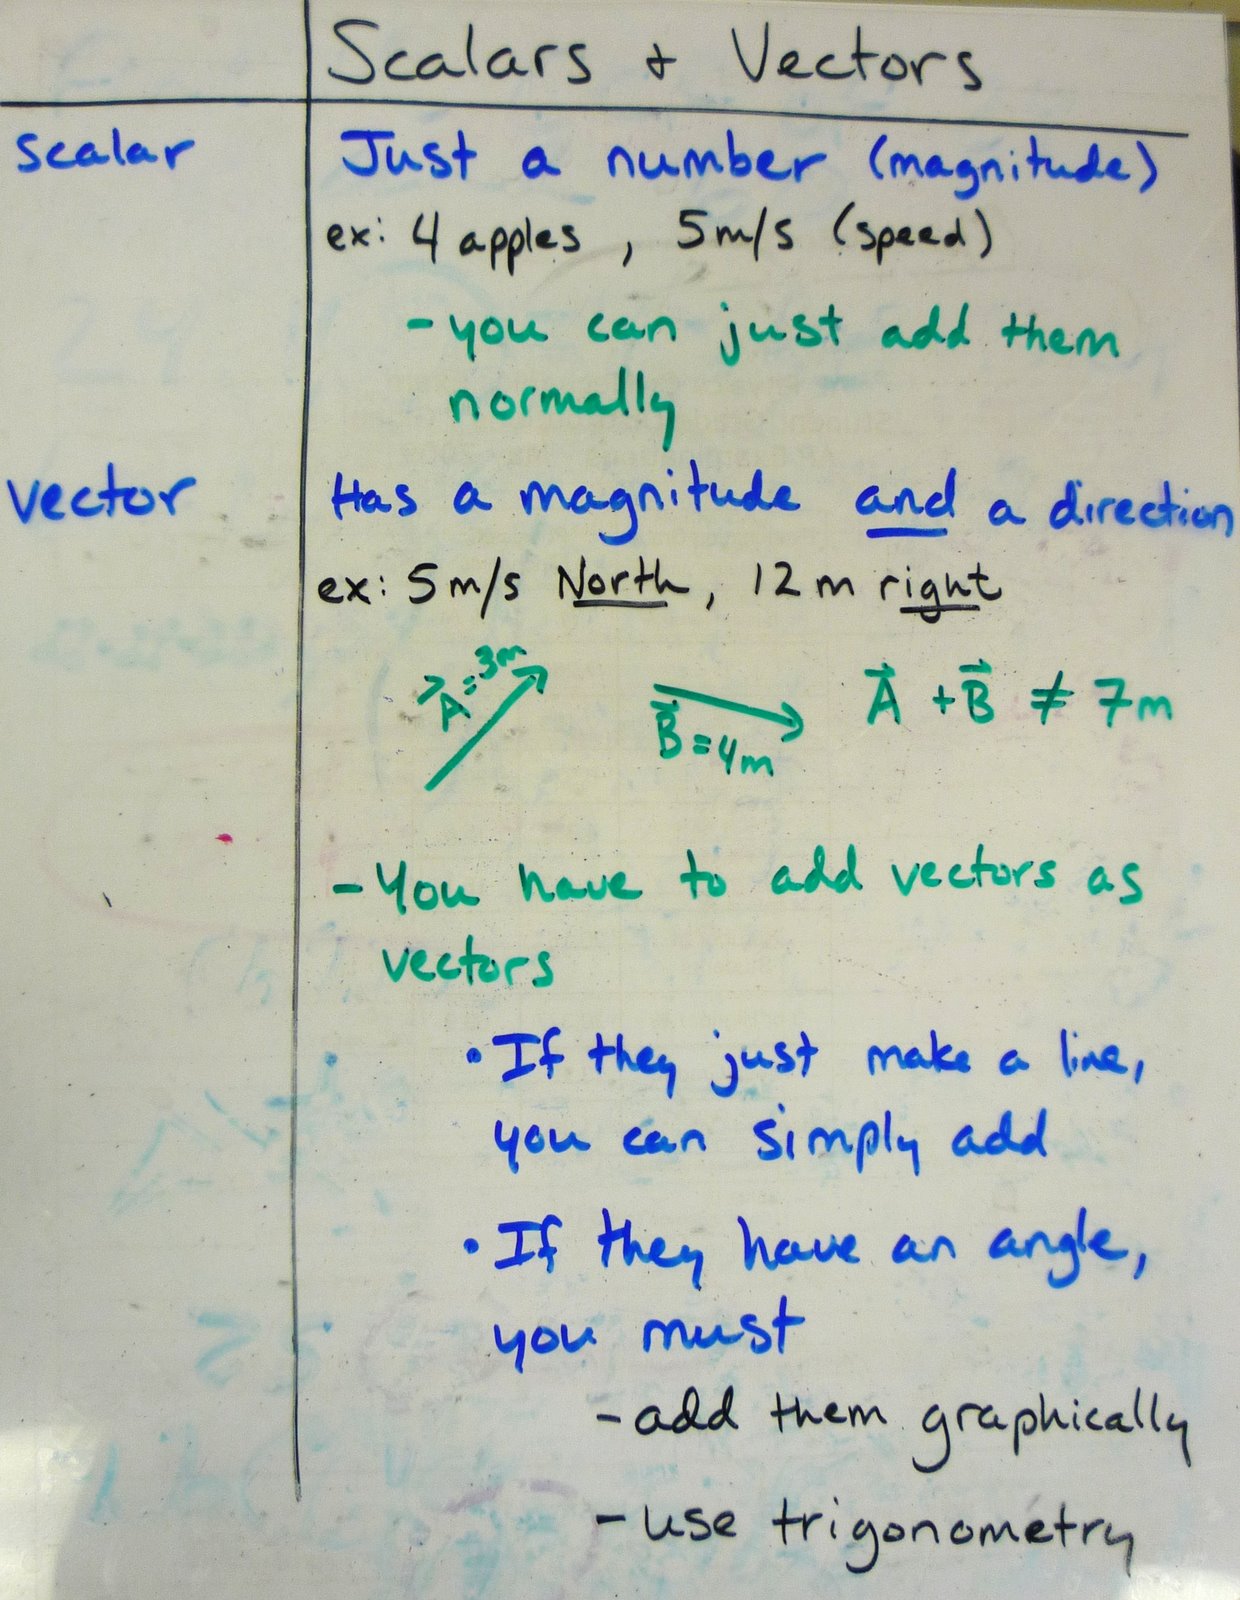 Scalars + Vectors
scalar
Just a number (magnitude)
ex: 4 apples, 5m/s (speed)
- you can just add them
normally
vector
Has a magnitude and a direction
ex: 5m/s North, 12m right
A⃗ = 3m
B⃗ = 4m
A⃗ + B⃗ ≠ 7m
- You have to add vectors as
vectors
• If they just make a line,
you can simply add
• If they have an angle,
you must
- add them graphically
- use trigonometry